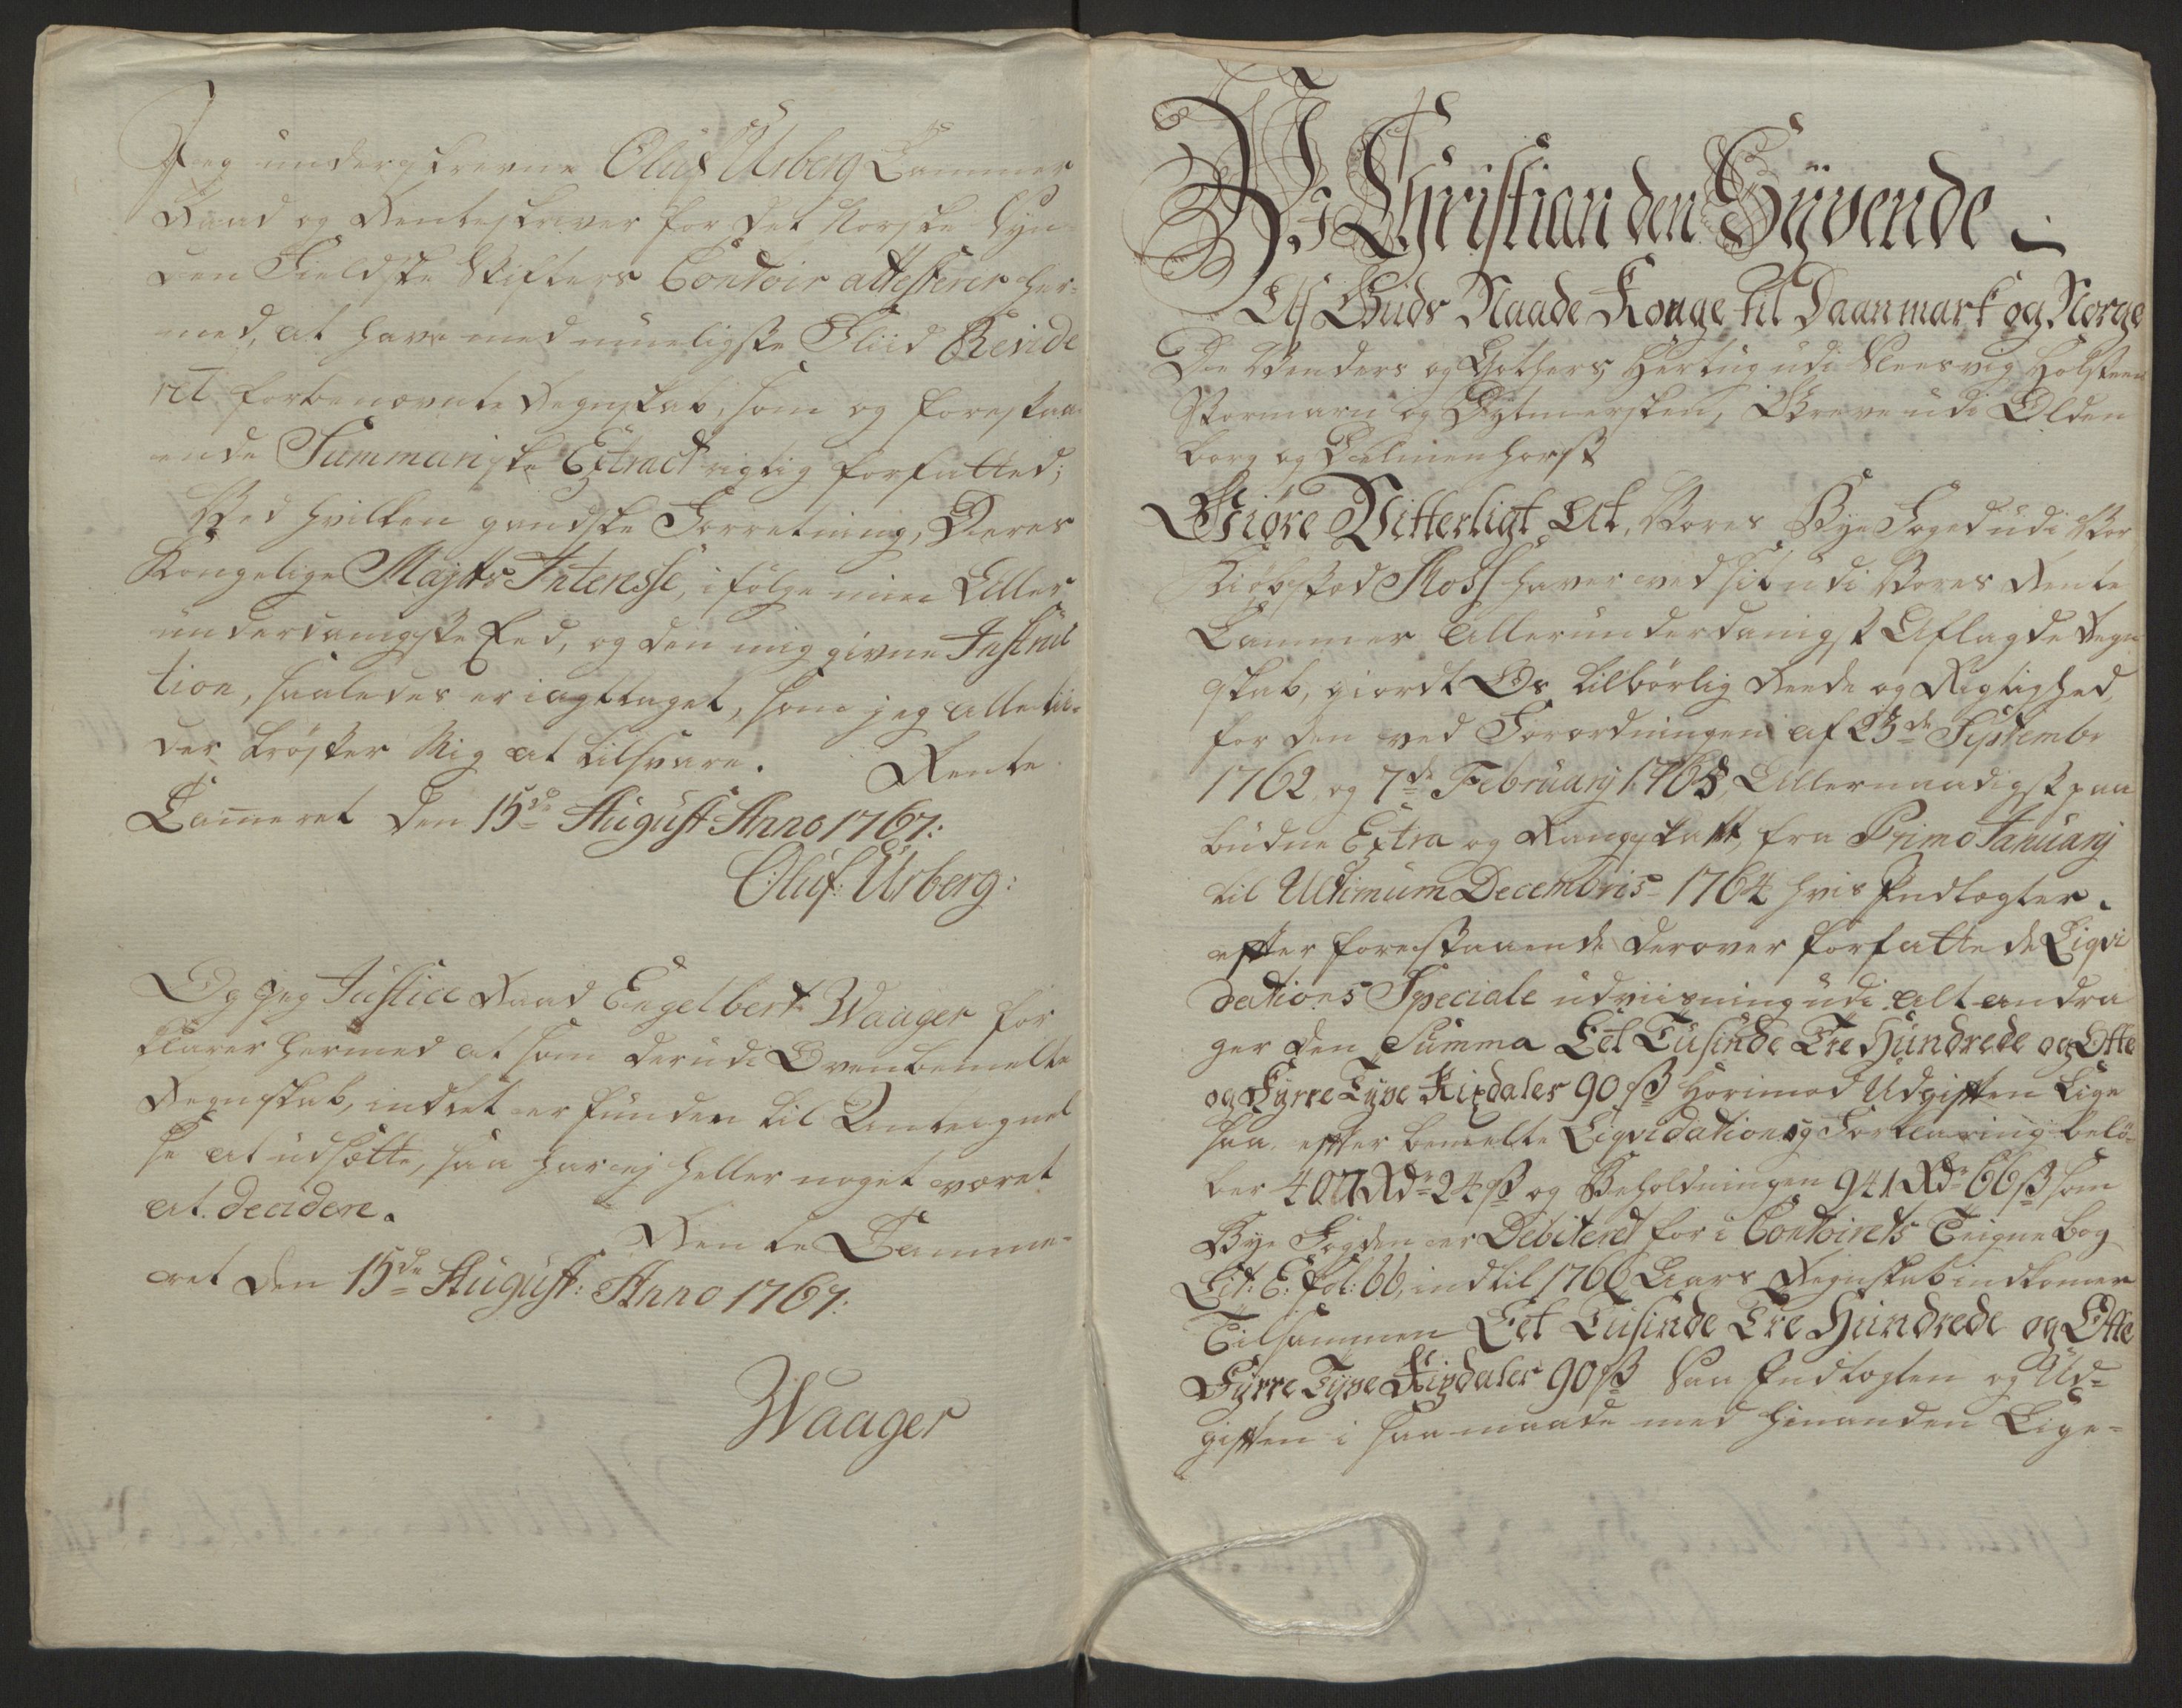 Jeg underskrevne Oluf Ursberg Cammer
Raad og Renteskriver for det Norske Syn
den Fieldske Stifters Contoir attesterer her-
med, at have med mueligste Fliid Revide
ret forbenævnte Regnskab, som og forestaa-
ende Summariske Extract rigtig forfatted;
Ved hvilken gandske Forretning, Deres
Kongelige Maytts Interesse, i følge min Aller
underdanigste Eed, og den mig givne Instruc
tion, saaledes er iagttaget, som jeg alle tii-
der trøster Mig at tilsvare. Rente
Cameret den 15de August Anno 1767:
Oluf: Ursberg:
Og Jeg Justice Raad Engelbert Waager for
klarer hermed at som derudi Ovenbemelte
Regnskab, indtet er funden til Antegnel
se at udsætte, saa har ej heller noget været
at decidere.
Rente Camme-
ret den 15de August: Anno 1767:
Waager
Wi Christian den Syvende
Af Guds Naade Konge til Danmark og Norge
De Wenders og Gothers, Hertug udi Slesvig Holsteen
Stormarn og Dytmersken, Greve udi Olden
borg og Delmenhorst
Giøre Vitterligt At, Vores Bye Foged udi Vor
Kiøbsted Moss haver ved sit udi Vores Rente
Cammer Allerunderdanigst Aflagde Regn
skab, giordt Os tilbørlig Reede og Rigtighed,
for den ved Forordningen af 23de Septembr
1762 og 7de February 1763, Allernaadigst paa
budne Extra og Rangskatt, fra Primo January
til Ultimum Decembris 1764 hvis Indtægter,
efter forestaaende derover forfattede Liqvi
dations Speciale udviisning udi alt andra
ger den Summa Eet Tusinde Tre Hundrede og Otte
og Fyrre Tyve Rixdaler 90 ß Horimod Udgiften Lige
saa efter bemelte Liqvidation og Forklaring belø-
ber 407 Rdr 24 ß og Beholdningen 941 Rdr 66 ß som
Bye Fogden er Debiteret for i Contoirets Teigne bog
Lit: E: fol: 66, ind til 1766 Aars Regnskab indkommer
Tilsammen Eet Tusinde Tre Hundrede og Otte
Fyrre Tyve Rixdaler 90 ß Saa Indtægten og Ud-
giften i saa maade med hinanden Lige-